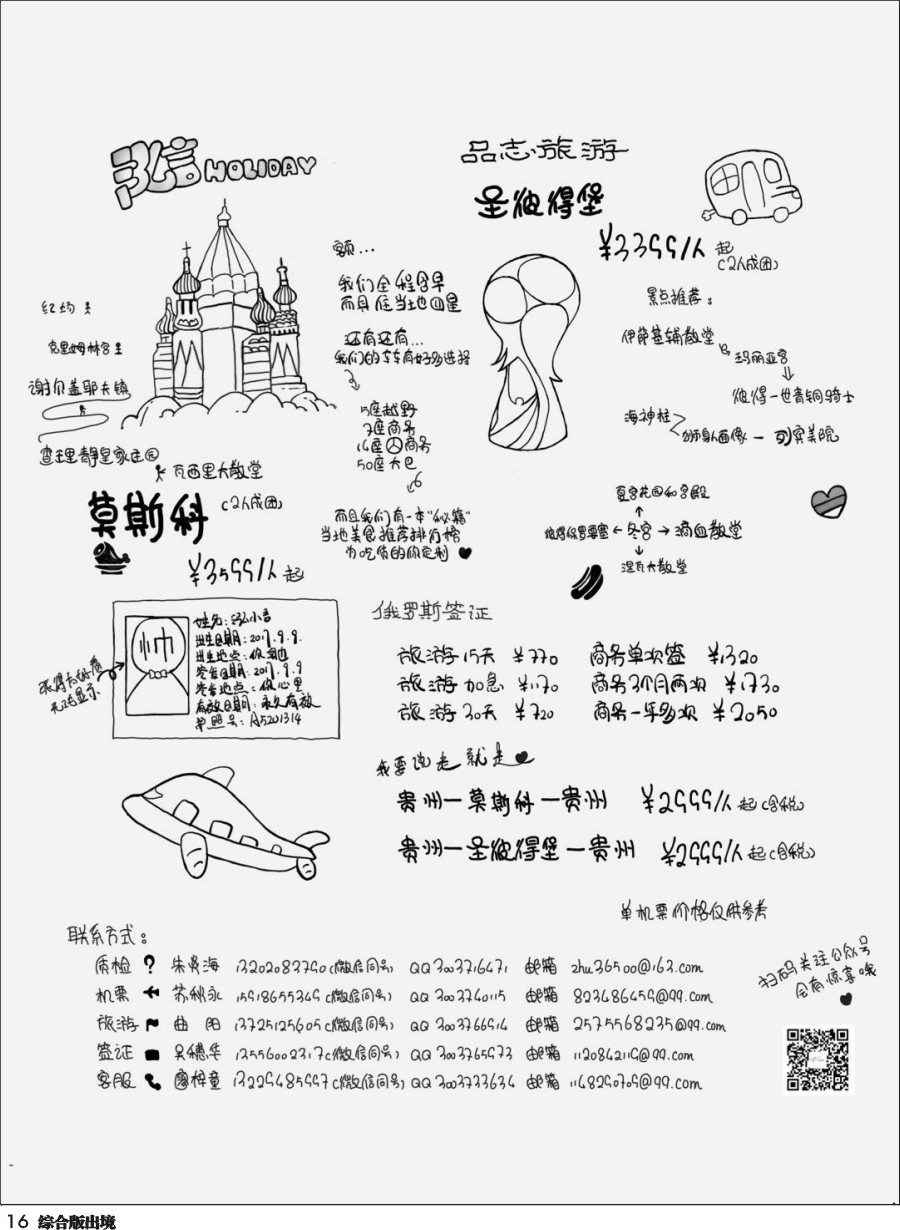 弘言HOLIDAY
品志旅游
圣彼得堡
¥3399/人 起
(2人成团)
额...
我们全程含早
而且住当地四星
还有还有...
我们的车车有好多选择
5座越野
7座商务
16座大商务
50座大巴
而且我们有一本“秘籍”
当地美食推荐排行榜
为吃货的你定制
红场
克里姆林宫
谢尔盖耶夫镇
查理津皇家庄园
瓦西里大教堂
莫斯科 (2人成团)
¥3599/人 起
景点推荐:
伊萨基辅教堂
玛丽亚宫
彼得一世青铜骑士
海神柱
狮身人面像 — 列宾美院
夏宫花园和宫殿
彼得保罗要塞 ← 冬宫 → 滴血教堂
涅瓦大教堂
帅
无法显示
姓名:弘小言
出生日期:2017.9.9.
出生地点:你身边
签发日期:2017.9.9
签发地点:你心里
有效日期:永久有效
护照号:A5201314
俄罗斯签证
旅游15天 ¥770 商务单次签 ¥1320
旅游加急 ¥1170 商务3个月两次 ¥1730
旅游30天 ¥720 商务一年多次 ¥2050
我要说走就走
贵州—莫斯科—贵州 ¥2999/人起(含税)
贵州—圣彼得堡—贵州 ¥2999/人起(含税)
单机票价格仅供参考
联系方式:
质检 ? 朱炎海 13202083790(微信同号) QQ 3003716471 邮箱 zhu36500@163.com
机票 苏秋永 15918655349(微信同号) QQ 3003740115 邮箱 823486459@qq.com
旅游 曲阳 13725125605(微信同号) QQ 3003766914 邮箱 2575568235@qq.com
签证 吴穗华 13556002317(微信同号) QQ 3003765973 邮箱 1120842119@qq.com
客服 廖梓童 13229485997(微信同号) QQ 3003733634 邮箱 1148290709@qq.com
扫码关注公众号
会有惊喜哦
16 综合版出境